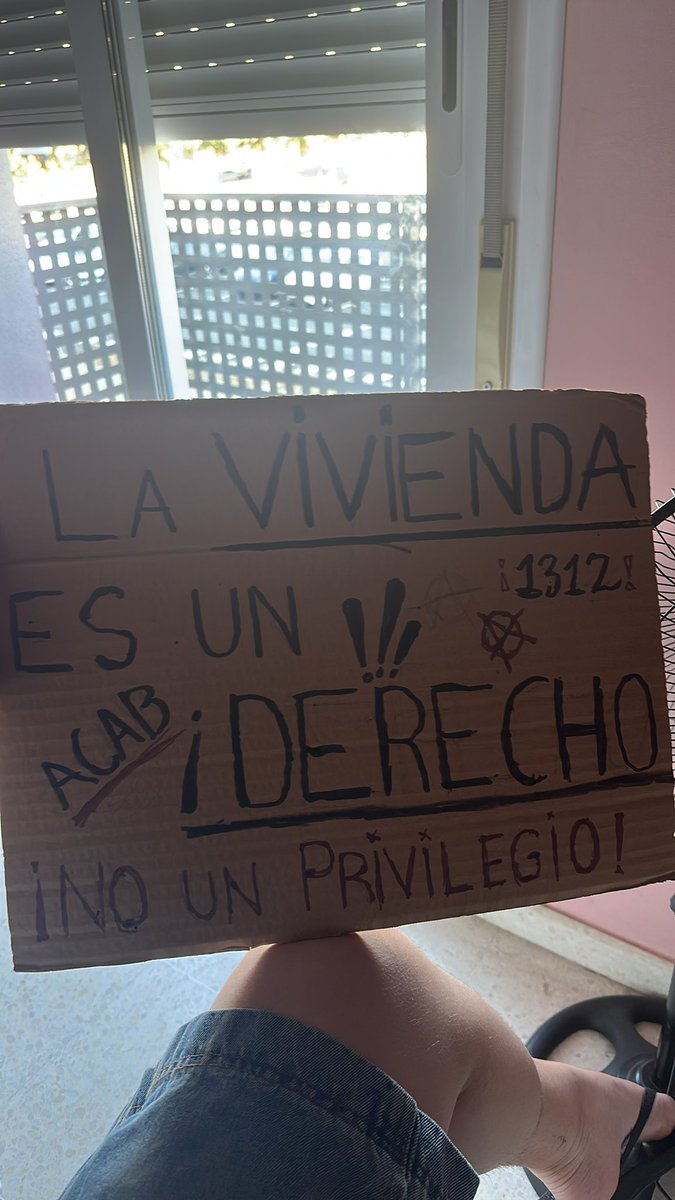 LA VIVIENDA
¡1312!
ES UN !!!
ACAB
¡DERECHO
¡NO UN PRIVILEGIO!